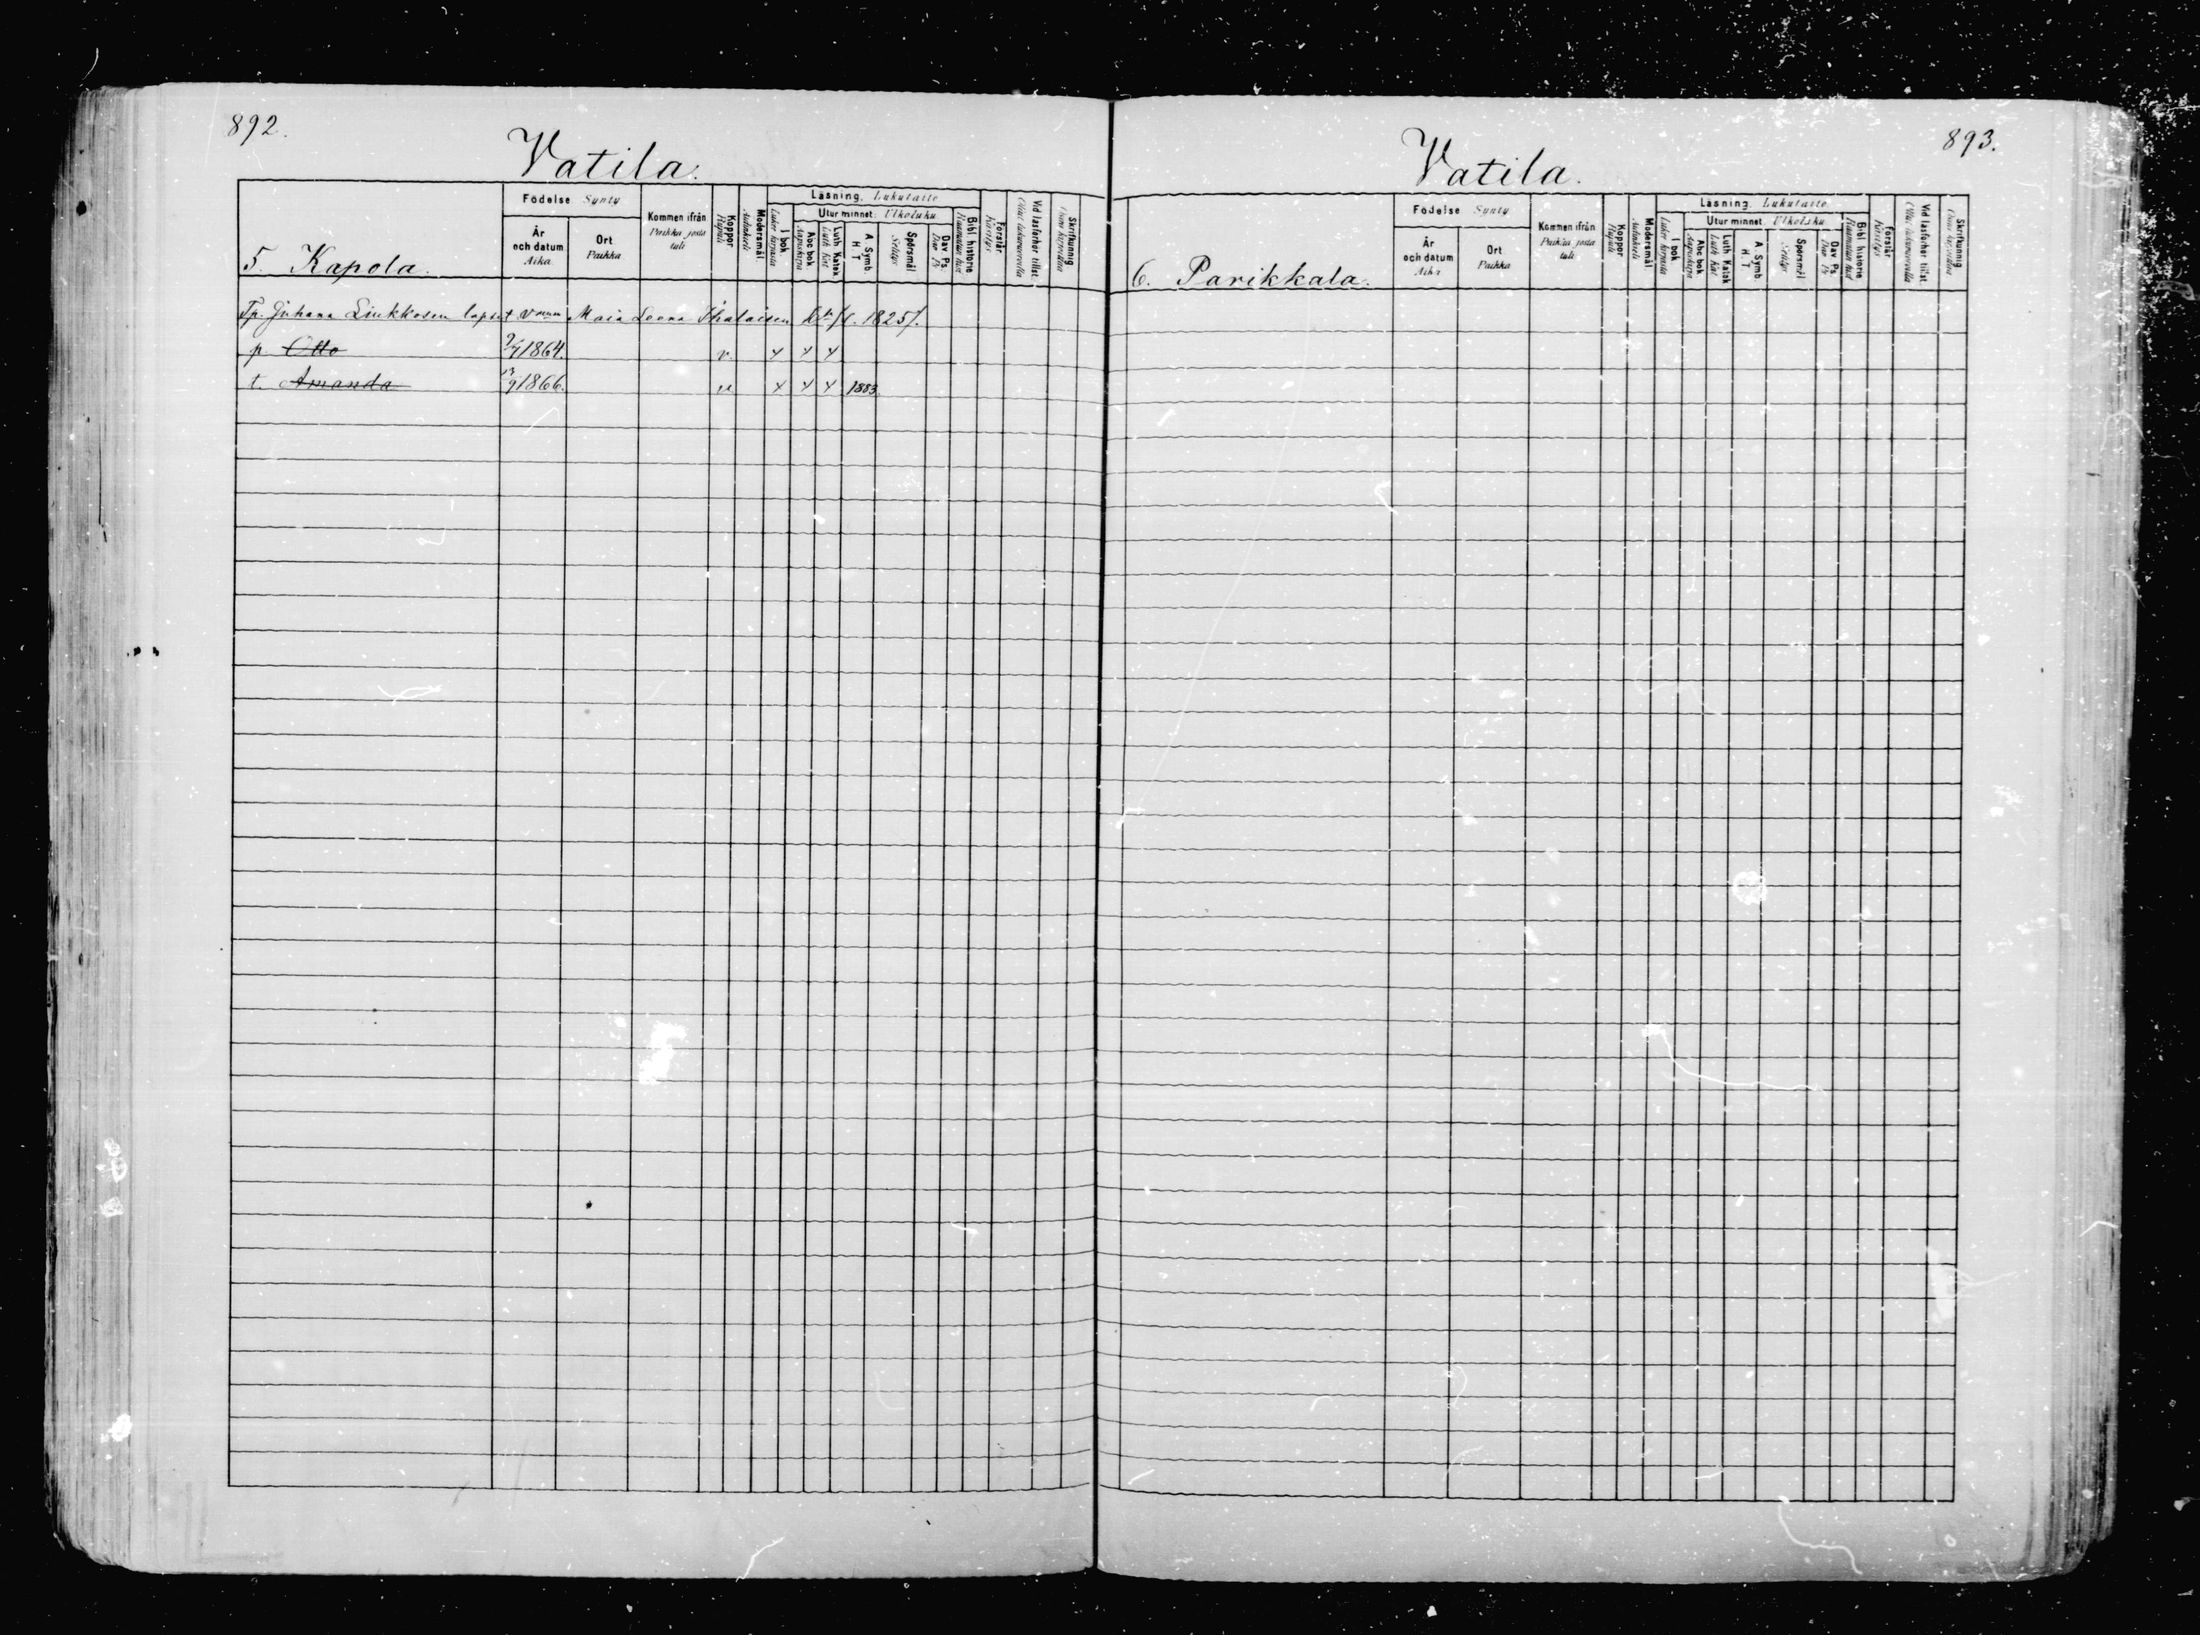 892.
Vatila.
5. Kapola.
Födelse Synty
År och datum Aika
Ort Paikka
Kommen ifrån Paikka josta tuli
Koppor Rupuli
Modersmål Äidinkieli
Läsning. Lukutaito
I bok Lukee kirjasta
Utur minnet: Ulkoluku
Abc bok Aapiskirja
Luth Katek Luth Kat
A Symb. H T
Spörsmål Selitys
Dav Ps. Dav Ps
Bibl historie Raamatun hist
Förstår Käsitys
Vid läsförhör tillst. Ollut lukuvuorolla
Skrifkunnig Osaa kirjoittaa
Tp. Juhana Liukkosen lapset Maia Leena 1825/.
p. Otto 1864. v. x x x
t. Amanda 1866. v x x x 1883
893.
Vatila.
6. Parikkala.
Födelse Synty
År och datum Aika
Ort Paikka
Kommen ifrån Paikka josta tuli
Koppor Rupuli
Modersmål Äidinkieli
Läsning. Lukutaito
I bok Lukee kirjasta
Utur minnet Ulkoluku
Abc bok Aapiskirja
Luth Katek Luth Kat
A Symb. H T
Spörsmål Selitys
Dav Ps. Dav Ps
Bibl historie Raamatun hist
Förstår Käsitys
Vid läsförhör tillst. Ollut lukuvuorolla
Skrifkunnig Osaa kirjoittaa